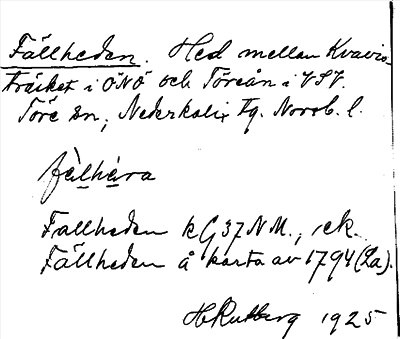 Fällheden. Hed mellan Kvavis-
träsket i ÖNÖ och Töreån i VSV.
Töre sn, Nederkalix tg. Norrb. l.
fàlhéra
Fällheden kG37NM., ek.
Fällheden å karta av 1794 (La).
H Rutberg 1925